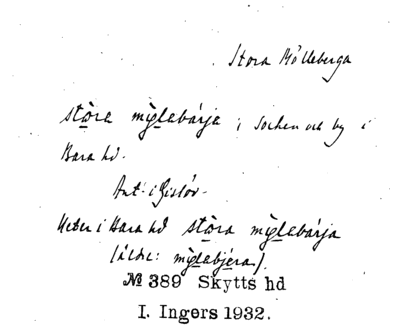 Stora Mölleberga
stòra mỳlebárja ; socken och by i
Bara hd.
Ant. i Gislöv.
Heter i Bara hd stòra mỳlebárja
(äldre: mỳlebjéra).
№ 389 Skytts hd
I. Ingers 1932.